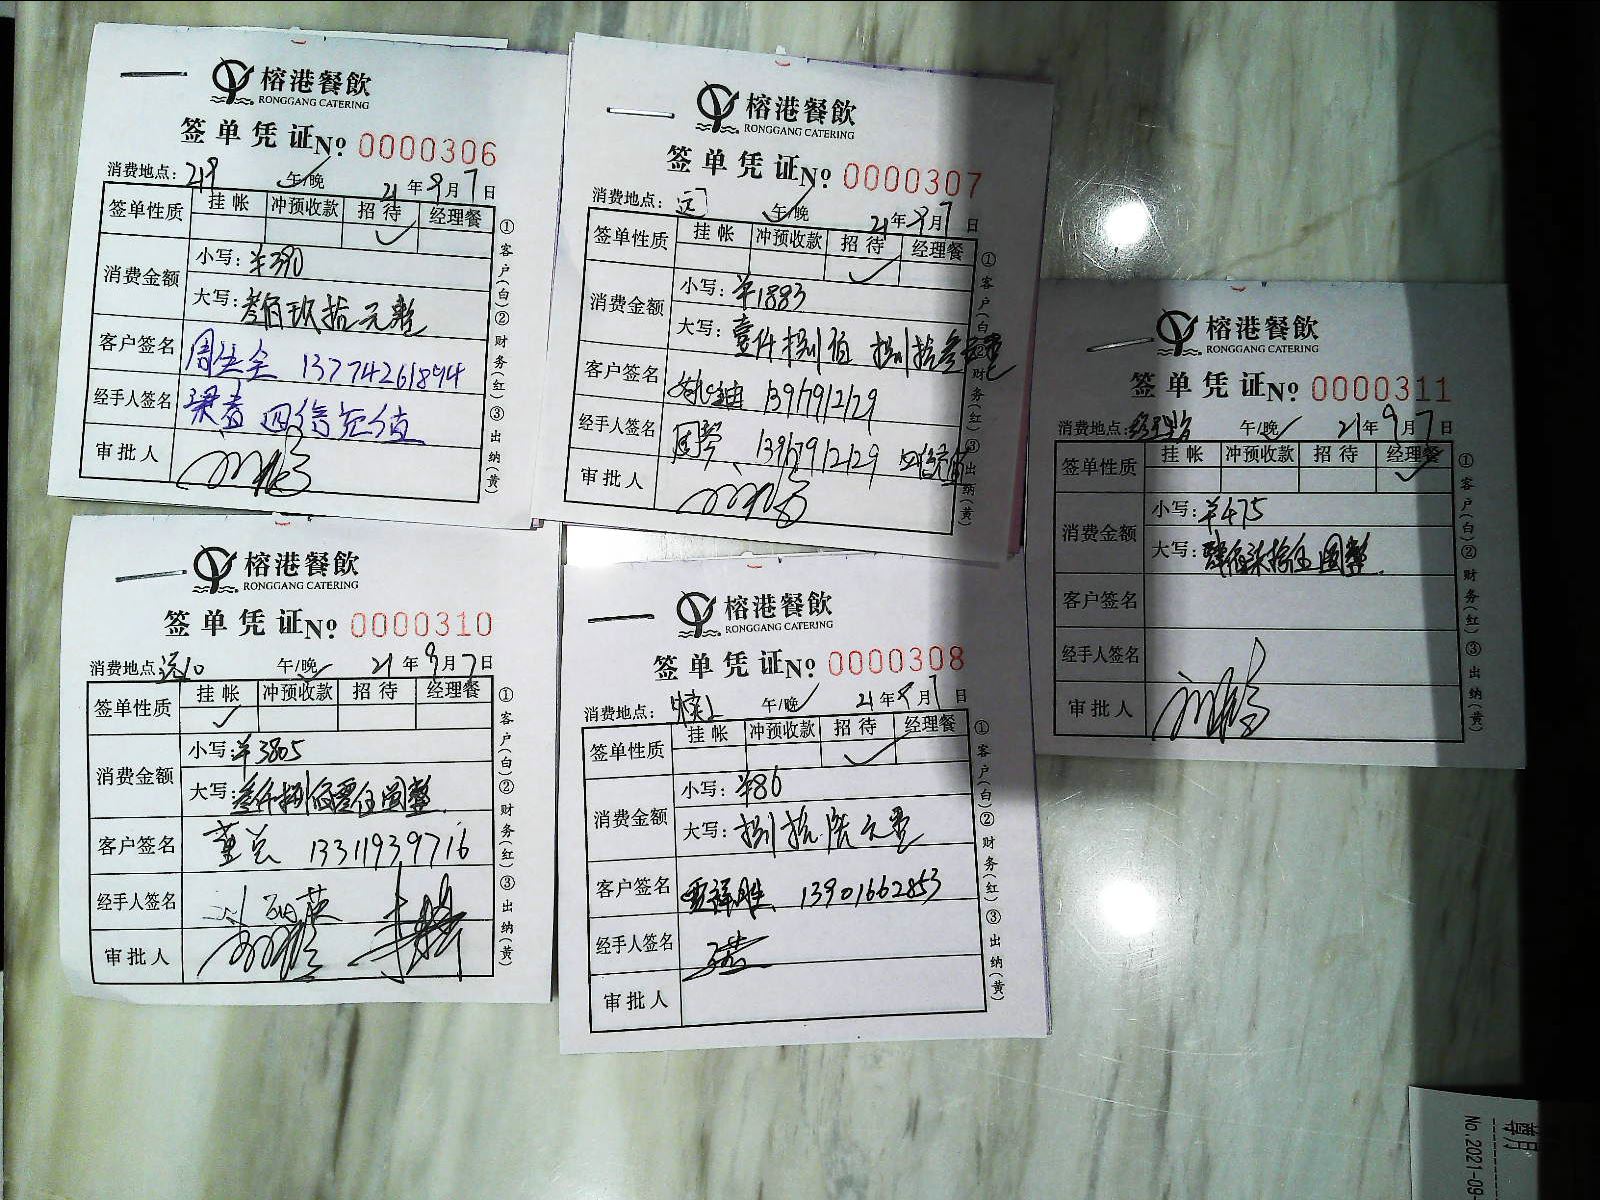 榕港餐飲
RONGGANG CATERING
签单凭证No 0000306
消费地点: 219 午/晚 21年9月7日
签单性质 挂帐 冲预收款 招待 经理餐
消费金额
小写: ¥390
大写: 叁佰玖拾元整
客户签名 13774261894
经手人签名
审批人
①客户(白)②财务(红)③出纳(黄)
榕港餐飲
RONGGANG CATERING
签单凭证No 0000307
消费地点: 午/晚 21年9月7日
签单性质 挂帐 冲预收款 招待 经理餐
消费金额
小写: ¥1883
大写: 壹仟捌佰捌拾叁元整
客户签名 13917912129
经手人签名 13917912129
审批人
①客户(白)②财务(红)③出纳(黄)
榕港餐飲
RONGGANG CATERING
签单凭证No 0000311
消费地点: 午/晚 21年9月7日
签单性质 挂帐 冲预收款 招待 经理餐
消费金额
小写: ¥475
大写: 肆佰柒拾伍圆整
客户签名
经手人签名
审批人
①客户(白)②财务(红)③出纳(黄)
榕港餐飲
RONGGANG CATERING
签单凭证No 0000310
消费地点: 远10 午/晚 21年9月7日
签单性质 挂帐 冲预收款 招待 经理餐
消费金额
小写: ¥3805
大写: 叁仟捌佰零伍圆整
客户签名 董总 13311939716
经手人签名
审批人
①客户(白)②财务(红)③出纳(黄)
榕港餐飲
RONGGANG CATERING
签单凭证No 0000308
消费地点: 午/晚 21年9月7日
签单性质 挂帐 冲预收款 招待 经理餐
消费金额
小写: ¥86
大写: 捌拾陆元整
客户签名 13901662853
经手人签名
审批人
①客户(白)②财务(红)③出纳(黄)
No.2021-09-